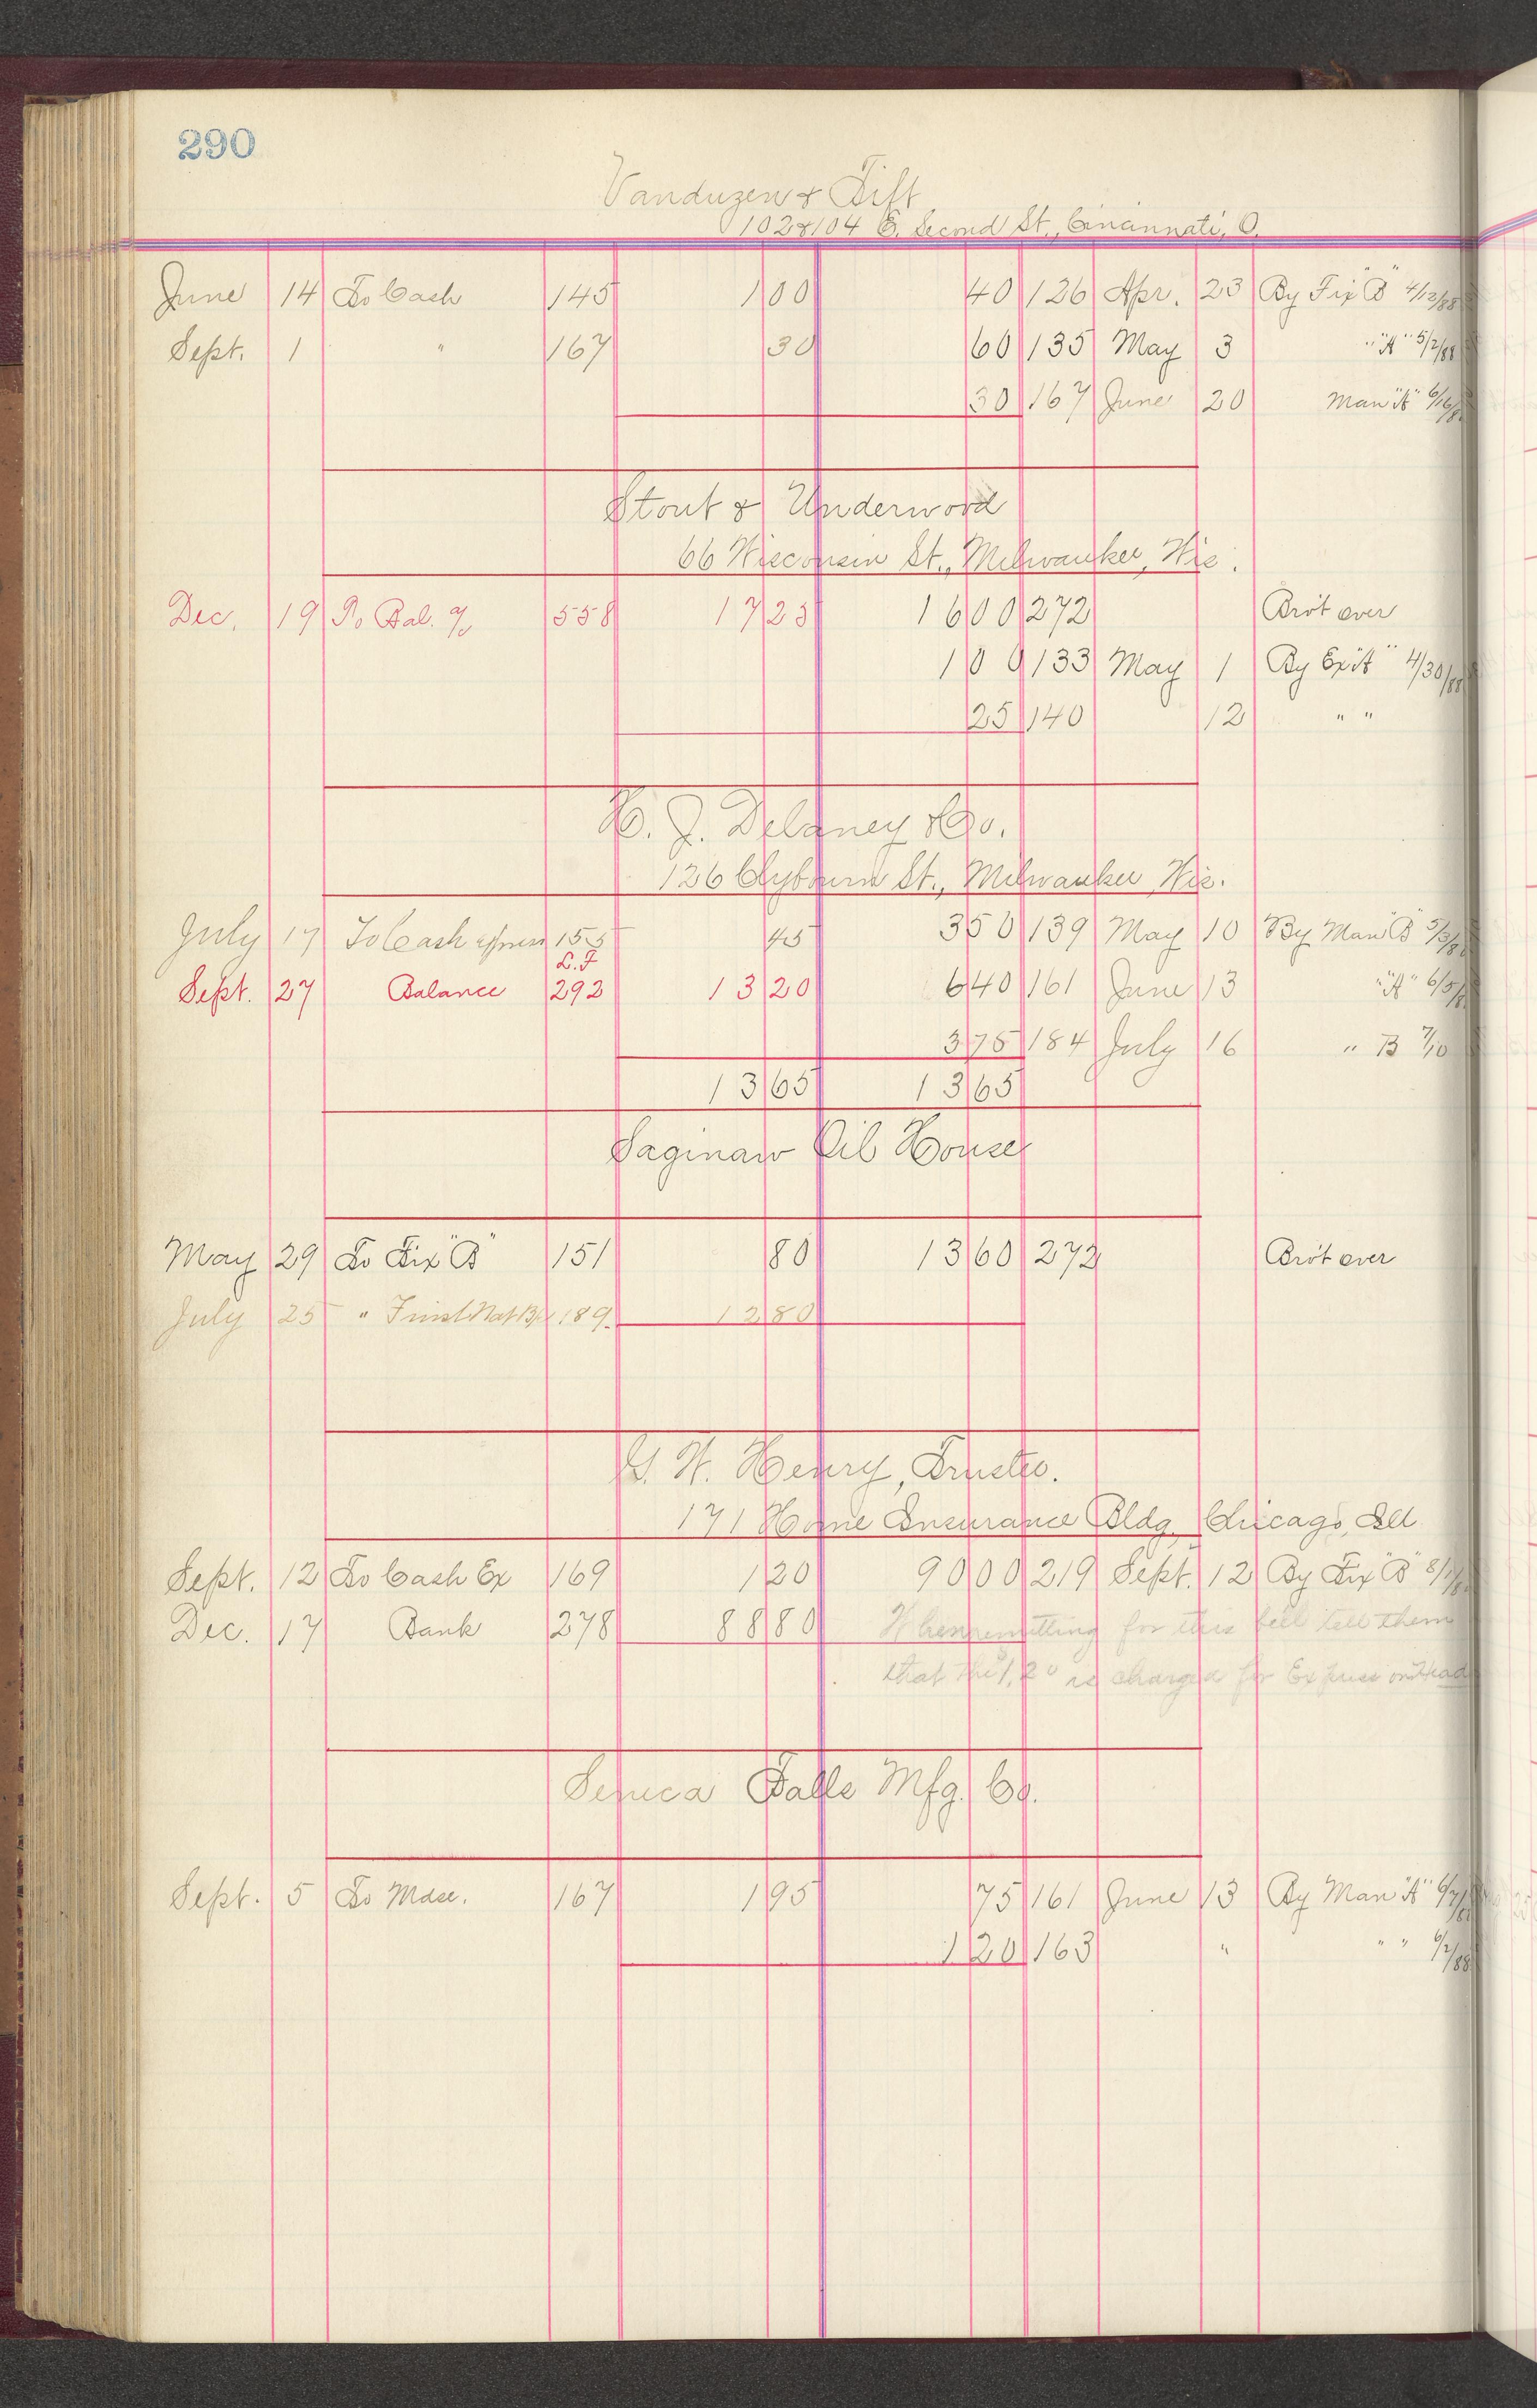 290
Vanduzen & Tift
102 & 104 E. Second St., Cincinnati, O.
June 14 To Cash 145 1 00 40 126 Apr. 23 By Fix "B" 4/12/88
Sept. 1 " 167 30 60 135 May 3 " "A" 5/2/88
30 167 June 20 Man "A" 6/16/8
Stout & Underwood
66 Wisconsin St., Milwaukee, Wis.
Dec. 19 To Bal. 558 17 25 16 00 272 Bro't over
1 00 133 May 1 By Ex "A" 4/30/88
25 140 12 " "
H. J. Delaney & Co.
126 Clybourn St., Milwaukee, Wis.
July 17 To Cash express 155 45 3 50 139 May 10 By Man "B" 5/3/8
L.F
Sept. 27 Balance 292 13 20 6 40 161 June 13 " "A" 6/5/8
3 75 184 July 16 " B 7/10
13 65 13 65
Saginaw Oil House
May 29 To Fix "B" 151 80 13 60 272 Bro't over
July 25 " First Nat Bk 189 12 80
G. W. Henry, Trustee.
171 Home Insurance Bldg. Chicago, Ill
Sept. 12 To Cash Ex 169 1 20 90 00 219 Sept. 12 By Fix "B" 8/1/8
Dec. 17 Bank 278 88 80 When remitting for this bill tell them
that the 1.20 is charged for Express on Head
Seneca Falls Mfg. Co.
Sept. 5 To Mdse. 167 1 95 75 161 June 13 By Man "A" 6/7/88
1 20 163 " " " 6/2/88